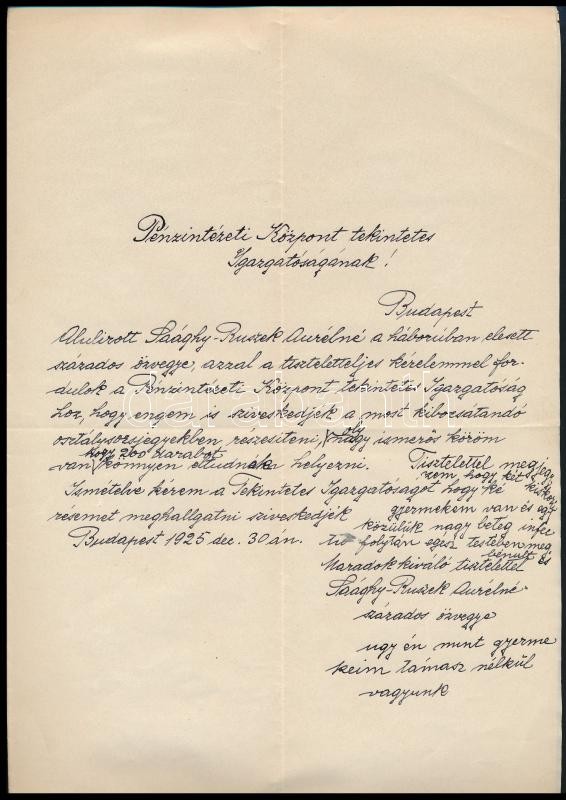 Pénzintézeti Központ tekintetes
Igazgatóságának!
Budapest
Alulirott Saághy-Ruszek Aurélné a háborúban elesett
százados özvegye, azzal a tiszteletteljes kérelemmel for-
dulok a Pénzintézeti Központ tekintetes Igazgatóság
hoz, hogy engem is sziveskedjék a most kibocsatandó
osztálysorsjegyekben részesíteni, oly nagy ismerős köröm
van hogy 200 darabot könnyen eltudnék helyezni.
Ismételve kérem a Tekintetes Igazgatóságot hogy ké
résemet meghallgatni sziveskedjék
Budapest 1925 dec. 30 án.
Tisztelettel megjegy
zem hogy két kiskorú
gyermekem van és egy
közülük nagy beteg infec
tio folytán egesz testében meg
bénult és
Maradok kiváló tisztelettel
Saághy-Ruszek Aurélné
százados özvegye
ugy én mint gyerme
keim támasz nélkül
vagyunk